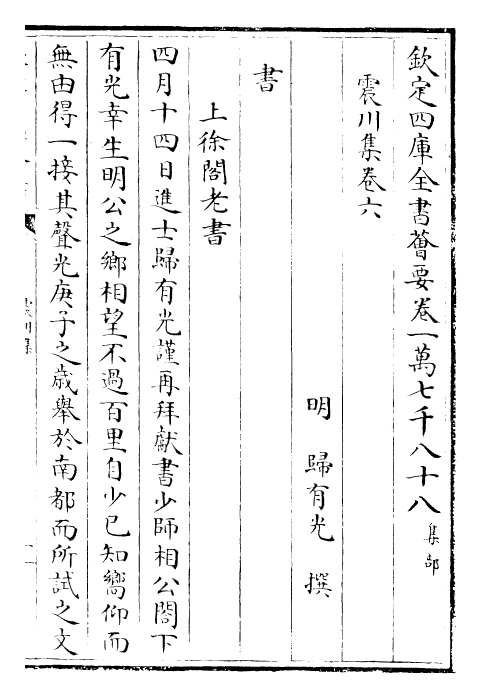 欽定四庫全書薈要卷一萬七千八十八 集部
震川集卷六
明 歸有光 撰
書
上徐閣老書
四月十四日進士歸有光謹再拜獻書少師相公閤下
有光幸生明公之鄉相望不過百里自少已知嚮仰而
無由得一接其聲光庚子之歲舉於南都而所試之文
震川集